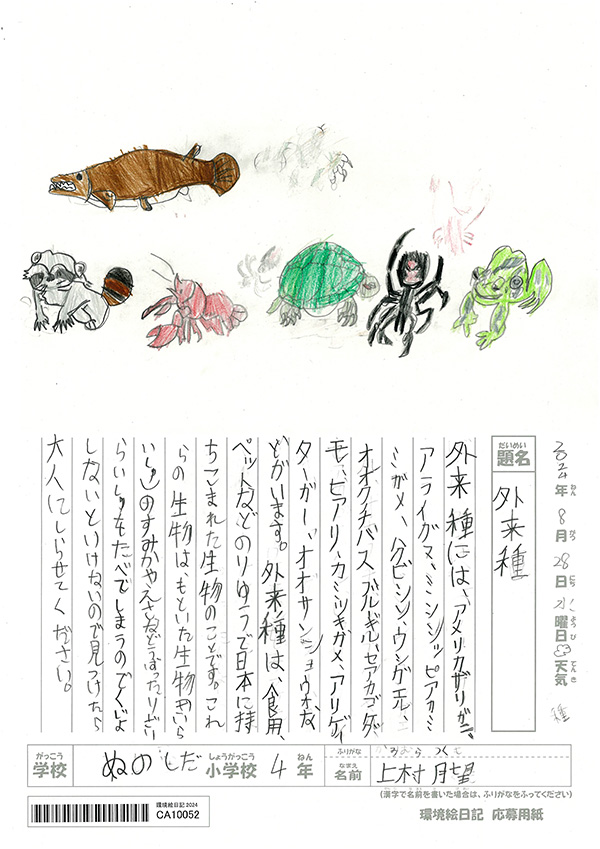 2024年 8月 28日 水曜日 天気
ねん がつ にち ようび てんき
だいめい
題名
外来種
外来種には、アメリカザリガニ、
アライグマ、ミシシッピアカミ
ミガメ、ハクビシン、ウシガエル、
オオクチバス ブルーギル、セアカゴケグ
モ、ヒアリ、カミツキガメ、アリゲイ
ターガー、オオサンショウウオな
どがいます。外来種は、食用、
ペットなどのりゆうで日本に持
ちこまれた生物のことです。これ
らの生物は、もといた生物やいら
らいしゅもたべてしまうのでくじょ
しないといけないので見つけたら
大人にしらせてください。
がっこう
学校
ぬのしだ
しょうがっこう
小学校
4
ねん
年
ふりがな
なまえ
名前
上村 月望
(漢字で名前を書いた場合は、ふりがなをふってください)
環境絵日記 2024
CA10052
環境絵日記 応募用紙